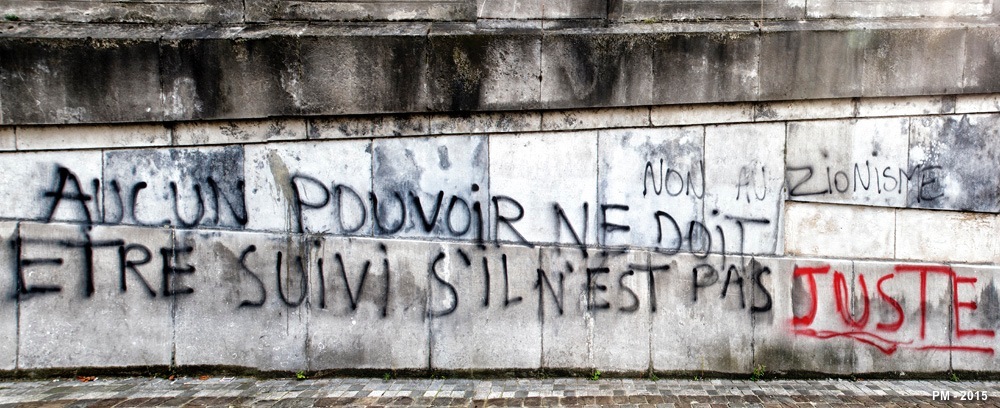 NON AU ZiONiSME
AUCUN POUVOiR NE DOiT
ETRE SUiVi S'iL N'EST PAS JUSTE
PM - 2015